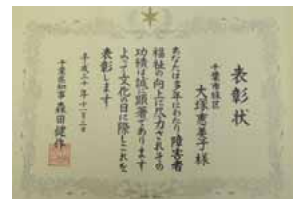 表彰状
千葉市緑区
大塚恵美子様
あなたは多年にわたり障害者
福祉の向上に尽力されその
功績は誠に顕著であります
よって文化の日に際しこれを
表彰します
平成二十年十一月三日
千葉県知事 森田健作